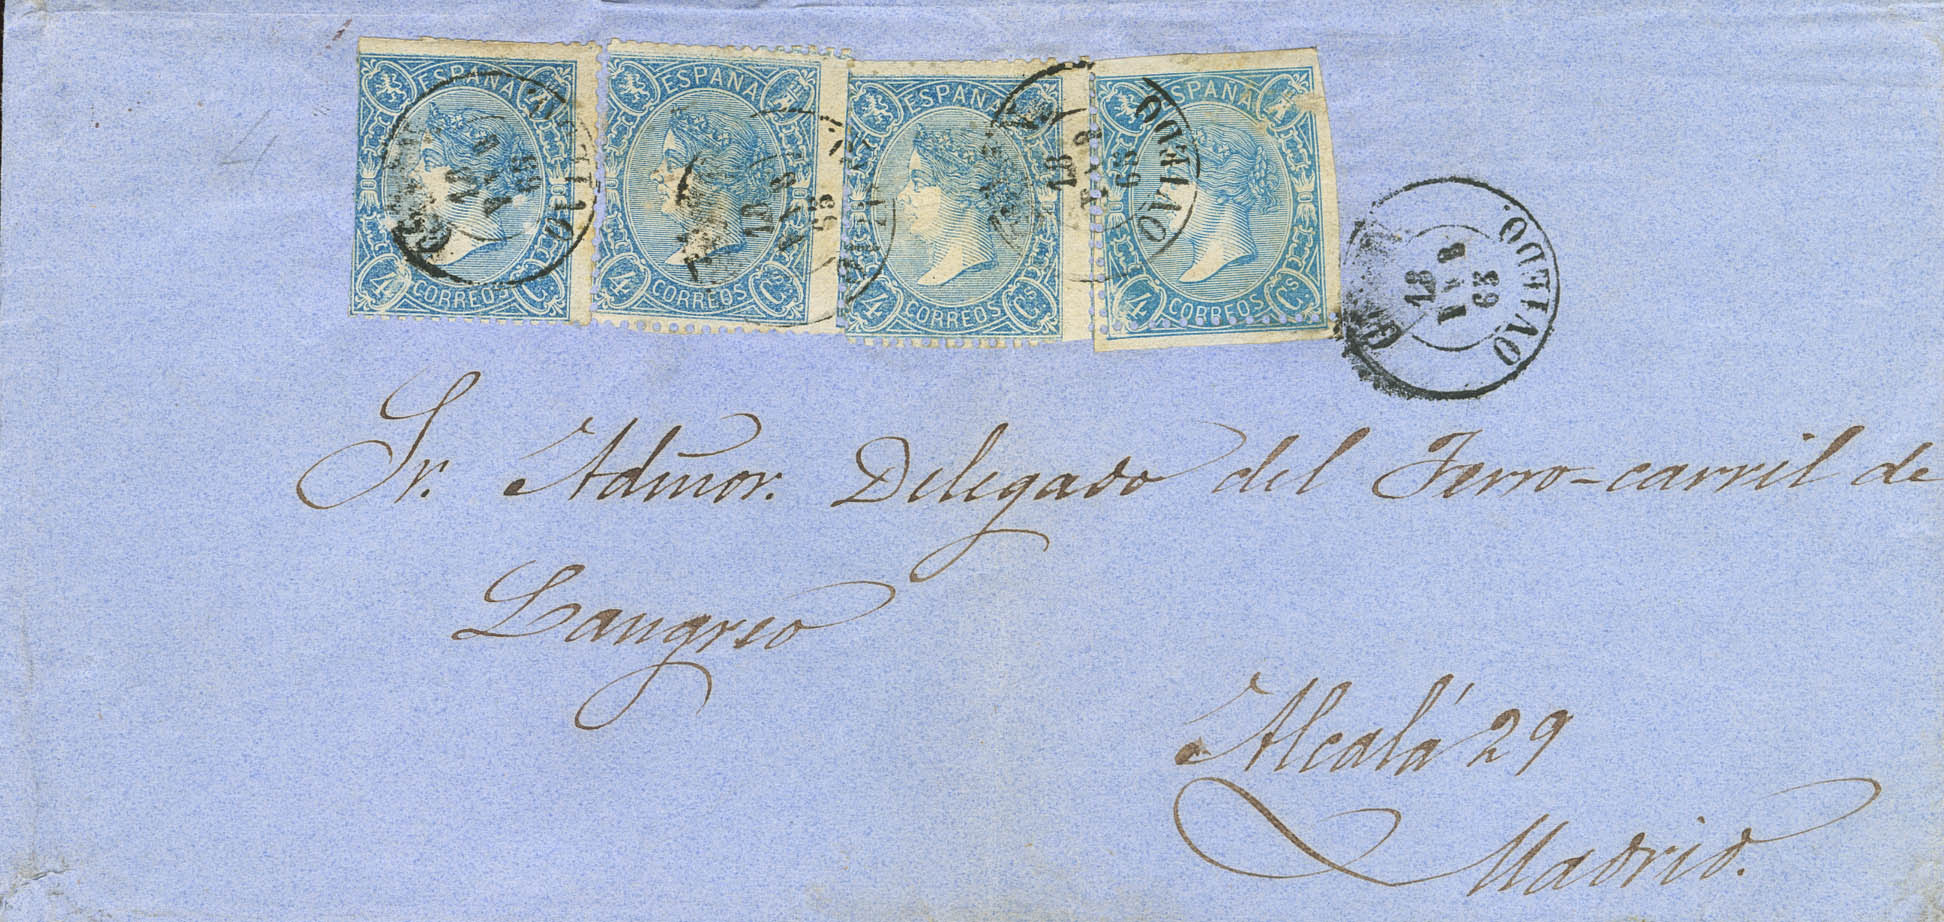 ESPAÑA
4 CORREOS Cs
ESPAÑA
4 CORREOS Cs
ESPAÑA
4 CORREOS Cs
ESPAÑA
4 CORREOS Cs
OVIEDO
18
65
OVIEDO.
18
65
Sr. Admor. Delegado del Ferro-carril de
Langreo
Alcalá 29
Madrid.